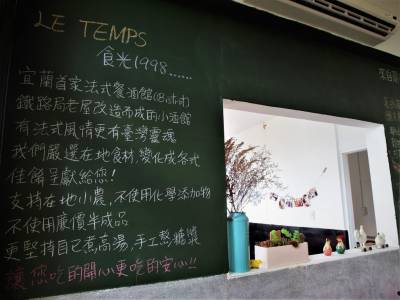 LE TEMPS
食光1998......
宜蘭首家法式餐酒館(Bistrot)
鐵路局老屋改造而成的小酒館
有法式風情更有臺灣靈魂
我們嚴選在地食材,變化成各式
佳餚呈獻給您!
支持在地小農,不使用化學添加物
不使用廉價半成品
更堅持自己熬高湯,手工熬糖漿
讓您吃的開心更吃的安心!!